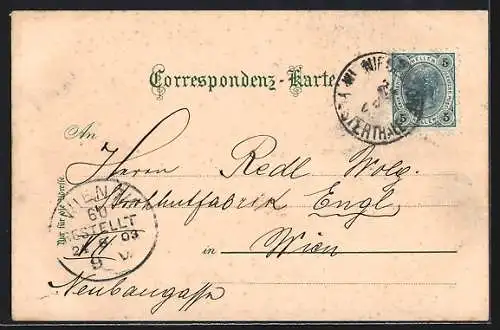 Correspondenz-Karte
5 5
An
Herrn Redl Wolg.
Strohhutfabrik Engl
in Wien
VII
Neubaugasse
Nur für die Adresse
WIEN
60
BESTELLT
24 8 03
9 V